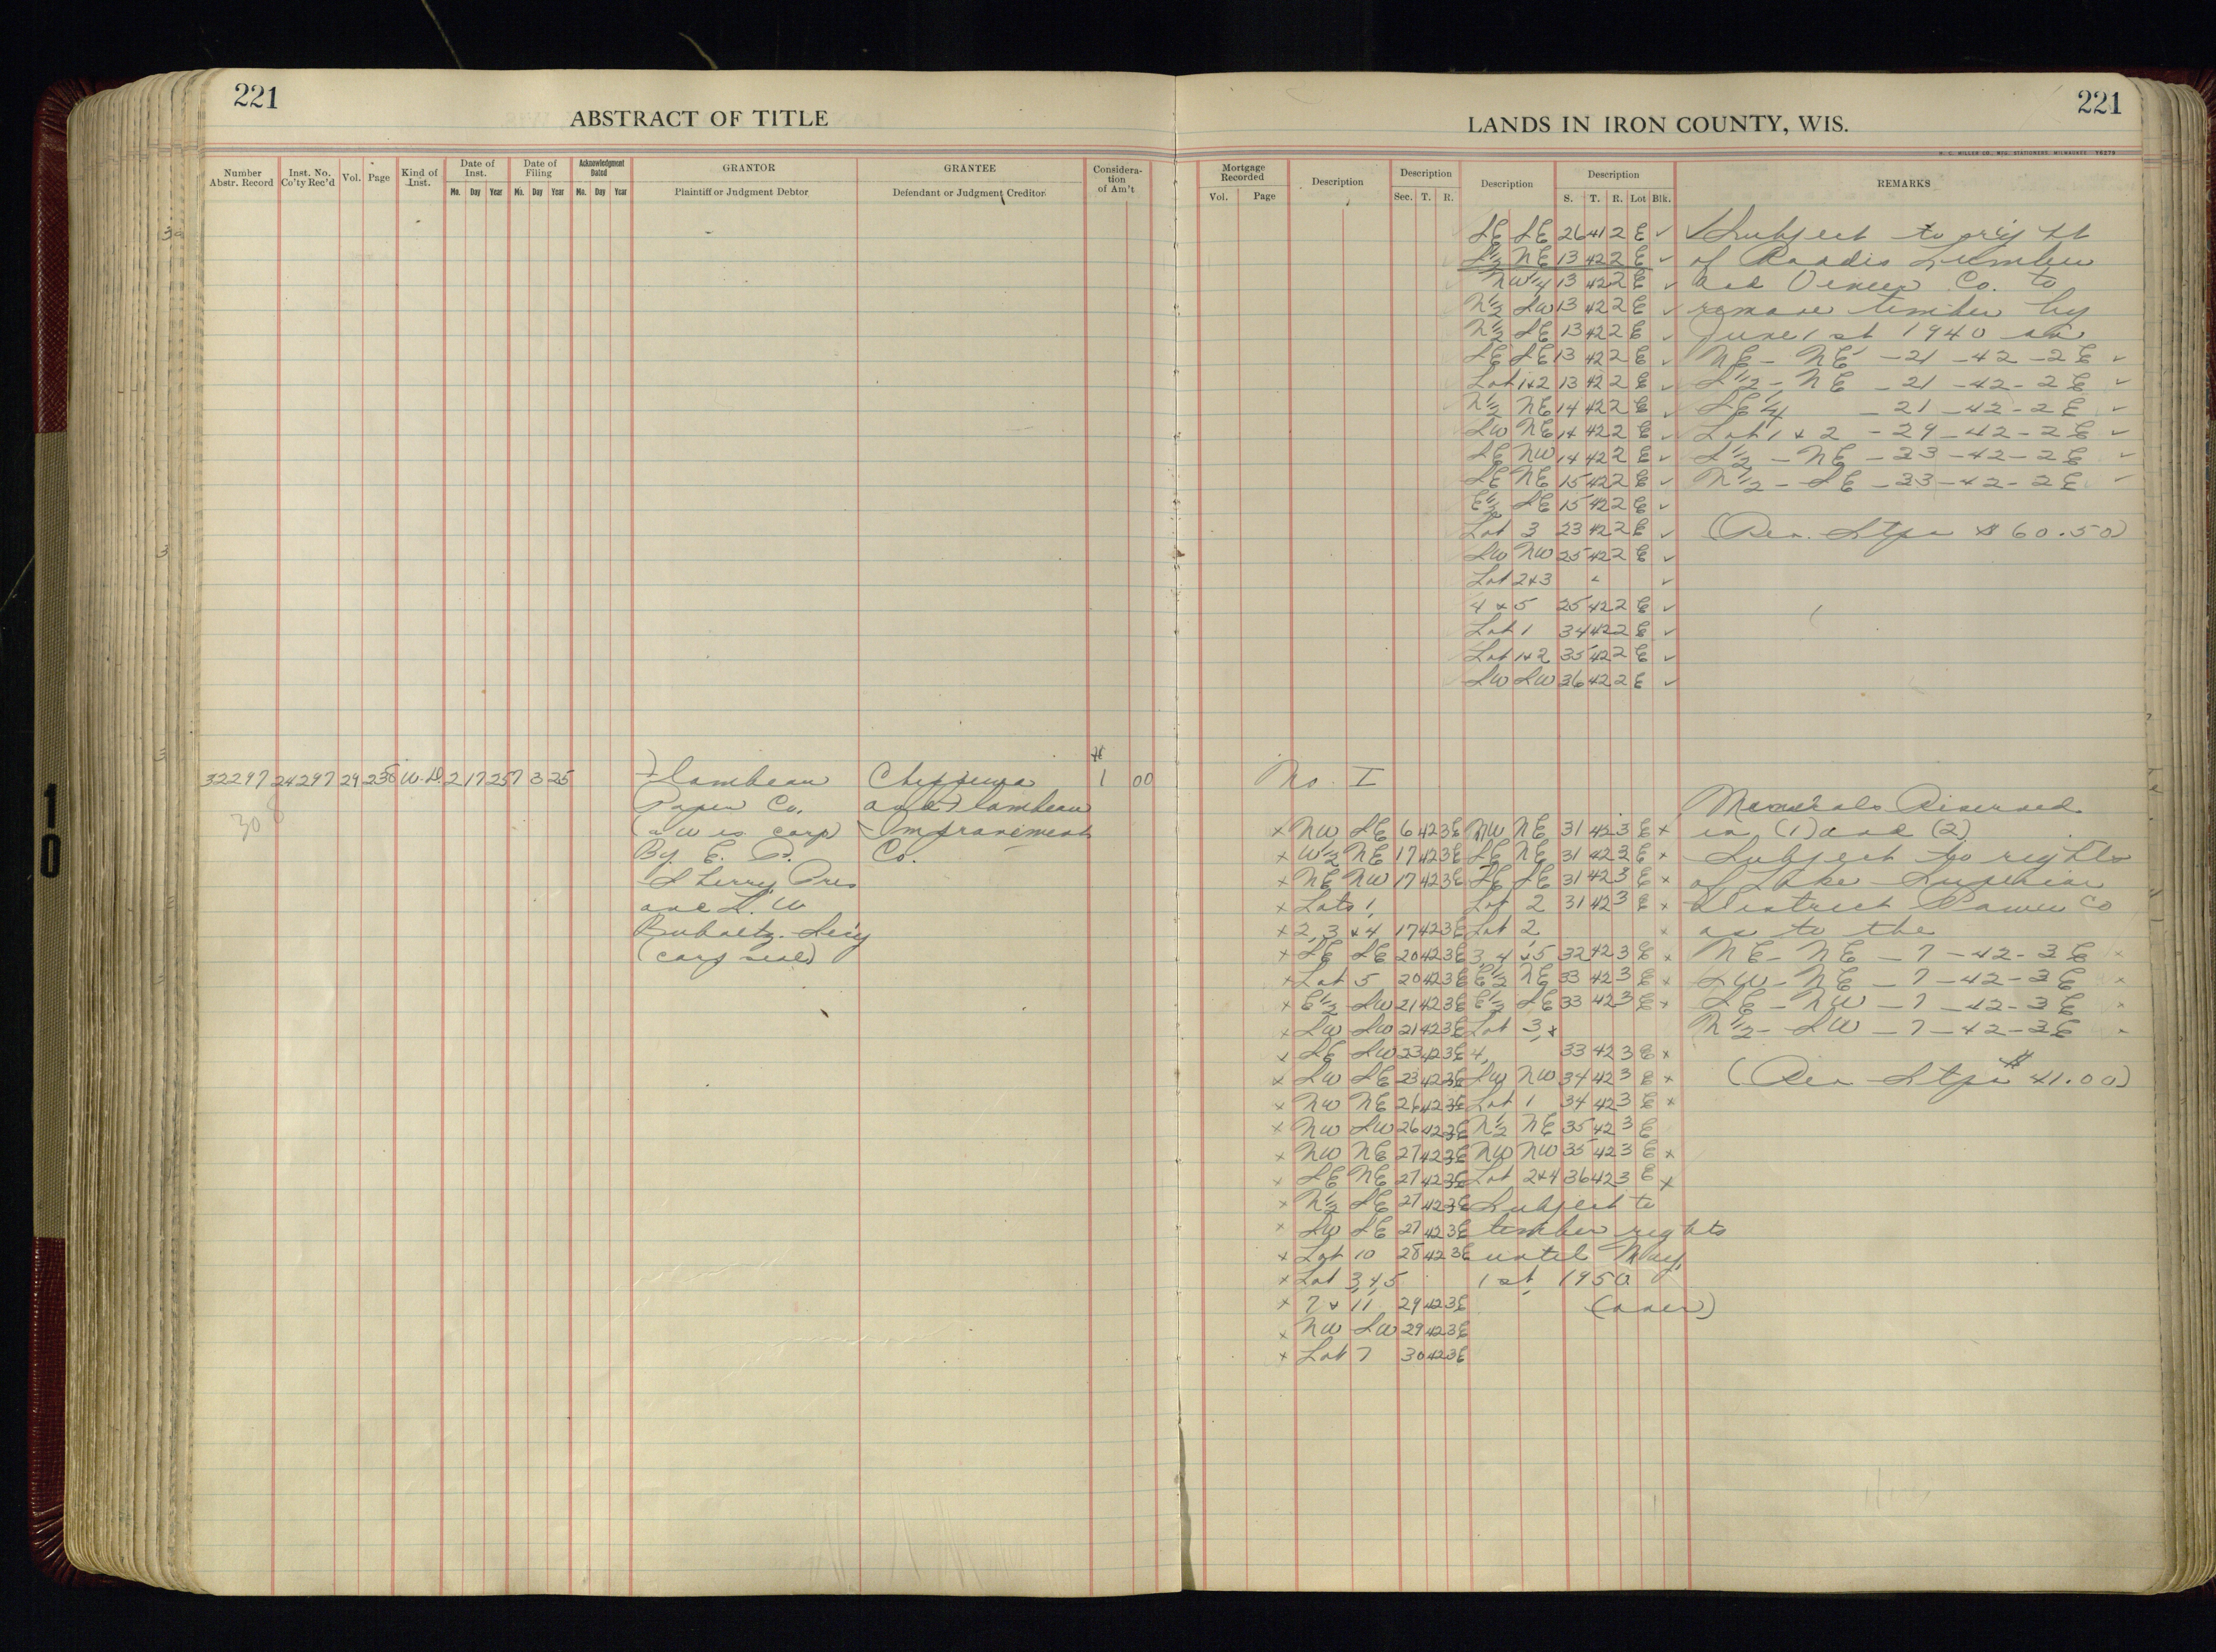 221
ABSTRACT OF TITLE
Number Abstr. Record
Inst. No. Co'ty Rec'd
Vol.
Page
Kind of Inst.
Date of Inst.
Mo. Day Year
Date of Filing
Mo. Day Year
Acknowledgment Dated
Mo. Day Year
GRANTOR
Plaintiff or Judgment Debtor
GRANTEE
Defendant or Judgment Creditor
Consideration of Am't
32297 24297 29 238 W.D. 2 17 25 7 3 25 Flambeau Chippewa $ 1 00
Paper Co. and Flambeau
30
(a Wis corp) Improvement
By. E. P. Co.
Sherry Pres
and L. W
Buholtz. Sec'y
(corp seal)
10
221
LANDS IN IRON COUNTY, WIS.
H. C. MILLER CO., MFG. STATIONERS, MILWAUKEE
Mortgage Recorded
Vol. Page
Description
Description
Sec. T. R.
Description
Description
S. T. R. Lot Blk.
REMARKS
SE SE 26 41 2 E ✓ ✓ Subject to right
S½ NE 13 42 2 E ✓ of Roddis Lumber
NW¼ 13 42 2 E ✓ and Veneer Co. to
N½ SW 13 42 2 E ✓ remove timber by
N½ SE 13 42 2 E ✓ June 1st 1940 on
SE SE 13 42 2 E ✓ NE - NE - 21 - 42 - 2 E ✓
Lot 1+2 13 42 2 E ✓ S½ - NE - 21 - 42 - 2 E ✓
N½ NE 14 42 2 E ✓ SE¼ - 21 - 42 - 2 E ✓
SW NE 14 42 2 E ✓ Lot 1 + 2 - 29 - 42 - 2 E ✓
SE NW 14 42 2 E ✓ S½ - NE - 33 - 42 - 2 E ✓
SE NE 15 42 2 E ✓ N½ - SE - 33 - 42 - 2 E ✓
E½ SE 15 42 2 E ✓
Lot 3 23 42 2 E ✓ (Rev. Stps $ 60.50)
SW NW 25 42 2 E ✓
Lot 2+3 ✓
4 + 5 25 42 2 E ✓
Lot 1 34 42 2 E ✓
Lot 1+2 35 42 2 E ✓
SW SW 36 42 2 E ✓
No. I
Minerals Reserved
x NW SE 6 42 3E NW NE 31 42 3 E x in (1) and (2)
x W½ NE 17 42 3E SE NE 31 42 3 E x Subject to rights
x NE NW 17 42 3E SE SE 31 42 3 E x of Lake Superior
x Lots 1, Lot 2 31 42 3 E x District Power Co
x 2, 3 + 4 17 42 3E Lot 2, x as to the
x SE SE 20 42 3E 3, 4 + 5 32 42 3 E x NE - NE - 7 - 42 - 3 E x
x Lot 5 20 42 3E E½ NE 33 42 3 E x SW - NE - 7 - 42 - 3 E x
x E½ SW 21 42 3E E½ SE 33 42 3 E x SE - NW - 7 - 42 - 3 E x
x SW SW 21 42 3E Lot 3, + N½ - SW - 7 - 42 - 3 E x
x SE SW 23 42 3E 4, 33 42 3 E x
x SW SE 23 42 3E SW NW 34 42 3 E x (Rev Stps $ 41.00)
x NW NE 26 42 3E Lot 1 34 42 3 E x
x NW SW 26 42 3E N½ NE 35 42 3 E
x NW NE 27 42 3E NW NW 35 42 3 E x
x SE NE 27 42 3E Lot 2+4 36 42 3 E x
x N½ SE 27 42 3E Subject to
x SW SE 27 42 3E timber rights
x Lot 10 28 42 3E until May,
x Lot 3, 4, 5 1st, 1950
x 7 + 11 29 42 3E (over)
x NW SW 29 42 3E
x Lot 7 30 42 3E